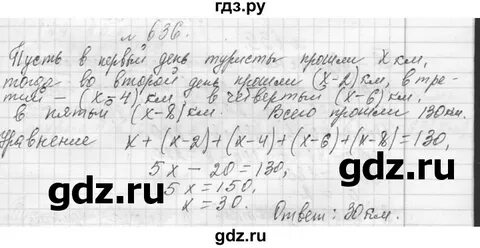 гдз.ру
№ 636.
Пусть в первый день туристы прошли x км,
тогда во второй день прошли (x-2) км, в тре-
тий - (x-4) км, в четвёртый (x-6) км,
в пятый (x-8) км. Всего прошли 130 км.
Уравнение x+(x-2)+(x-4)+(x-6)+(x-8)=130,
5x-20=130,
5x=150,
x=30. Ответ: 30 км.
gdz.ru gdz.ru